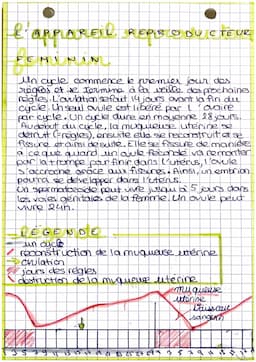 L'APPAREIL REPRODUCTEUR
FEMININ
Un cycle commence le premier jour des
règles et se termine à la veille des prochaines
règles. L'ovulation se fait 14 jours avant la fin du
cycle. Un seul ovule est libéré par 1 ovaire
par cycle. Un cycle dure en moyenne 28 jours.
Au début du cycle, la muqueuse utérine se
détruit (règles), ensuite elle se reconstruit et se
fissure et ainsi de suite. Elle se fissure de manière
à ce que quand un ovule fécondé va remonter
par la trompe pour finir dans l'utérus, l'ovule
s'accroche grâce aux fissures. Ainsi, un embrion
pourra se développer dans l'utérus.
Un spermatozoïde peut vivre jusqu'à 5 jours dans
les voies génitales de la femme. Un ovule peut
vivre 24h.
LEGENDE
un cycle
reconstruction de la muqueuse utérine
ovulation
jours des règles
destruction de la muqueuse utérine
muqueuse
utérine
vaisseau
sanguin